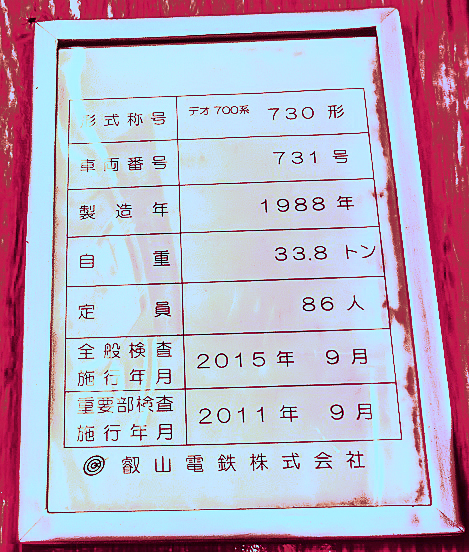 形式称号 デオ700系 730形
車両番号 731号
製造年 1988年
自重 33.8トン
定員 86人
全般検査
施行年月 2015年 9月
重要部検査
施行年月 2011年 9月
叡山電鉄株式会社